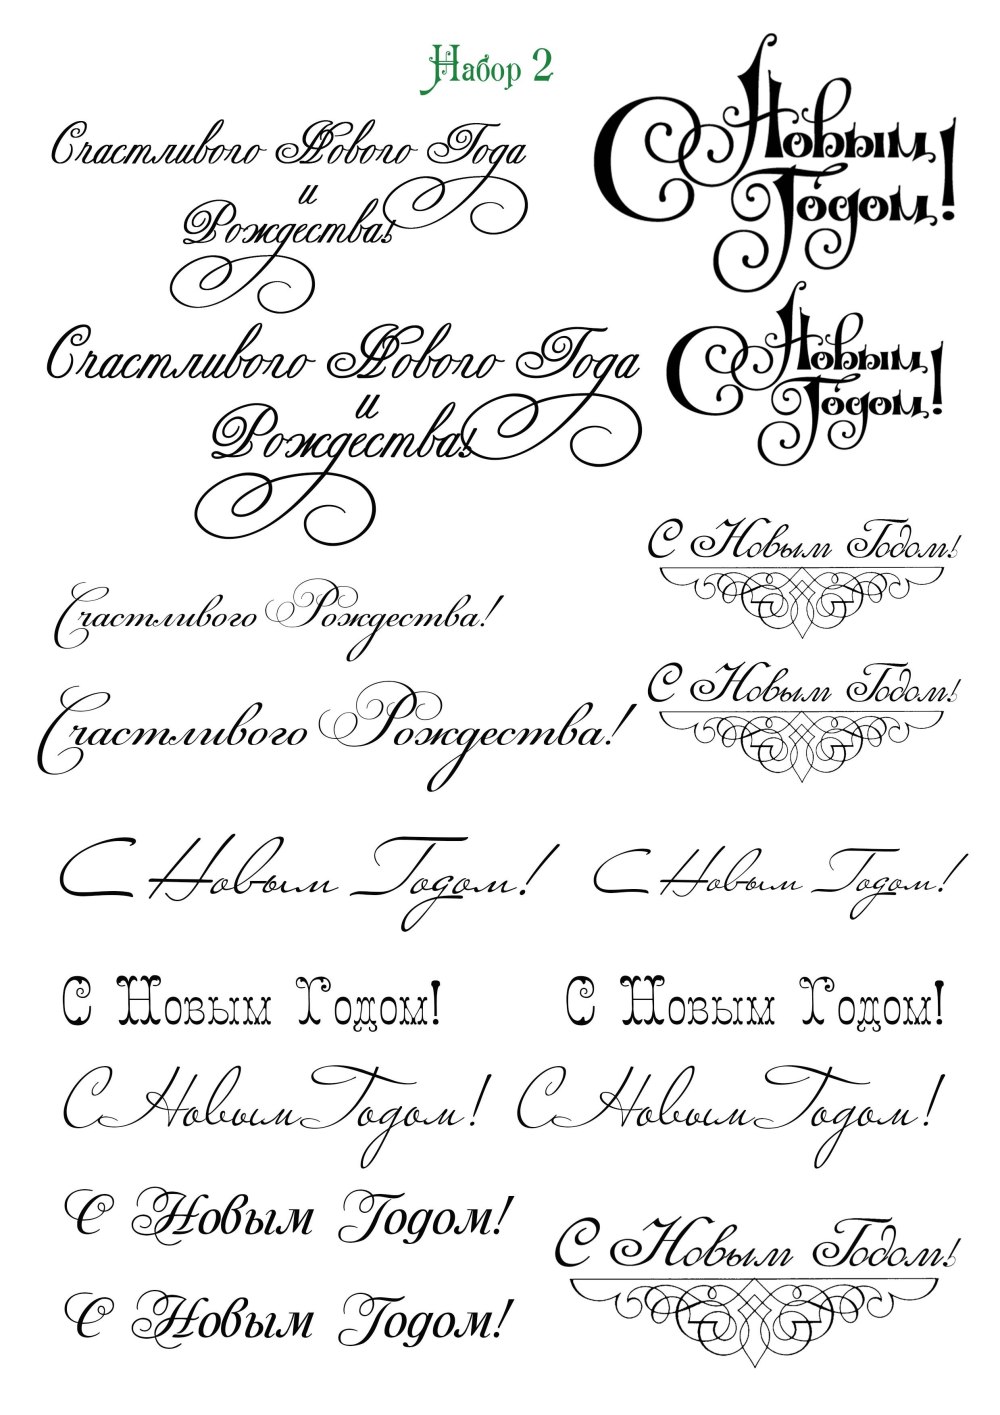 Набор 2
Счастливого Нового Года
и
Рождества!
С Новым
Годом!
Счастливого Нового Года
и
Рождества!
С Новым
Годом!
С Новым Годом!
Счастливого Рождества!
С Новым Годом!
Счастливого Рождества!
С Новым Годом!
С Новым Годом!
С Новым Годом!
С Новым Годом!
С Новым Годом!
С Новым Годом!
С Новым Годом!
С Новым Годом!
С Новым Годом!